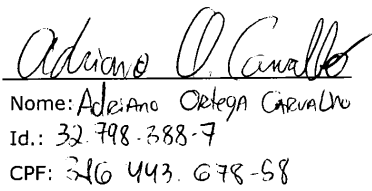 Adriano O. Carvalho
Nome: Adriano Ortega Carvalho
Id.: 32.798.388-7
CPF: 316 443.678-58